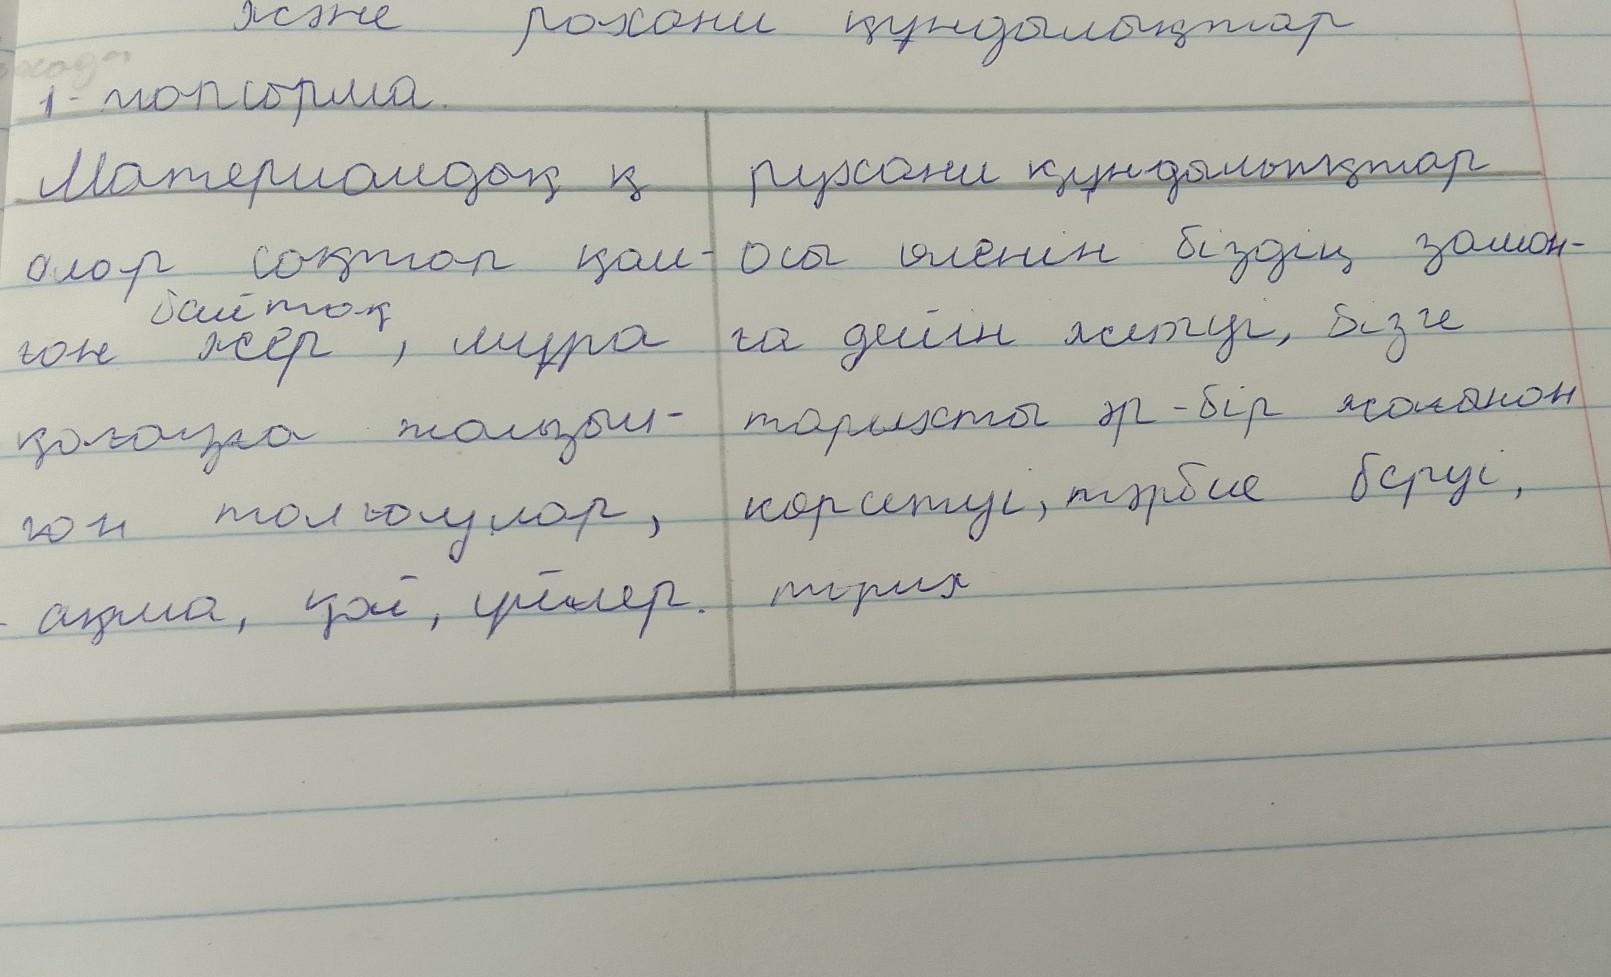 және рохани құндылықтар
1- тапсырма.
Материалдық қ
рухани құндылықтар
олар соқтап қал-
байтақ
ған жер, мұра
қағазға жазыл-
ған толғаулар,
ақша, қой, үйлер.
Осы өленін біздің заман-
ға дейін жетуі, бізге
тарихты әр-бір жағынан
көрсетуі, тәрбие беруі,
тарих